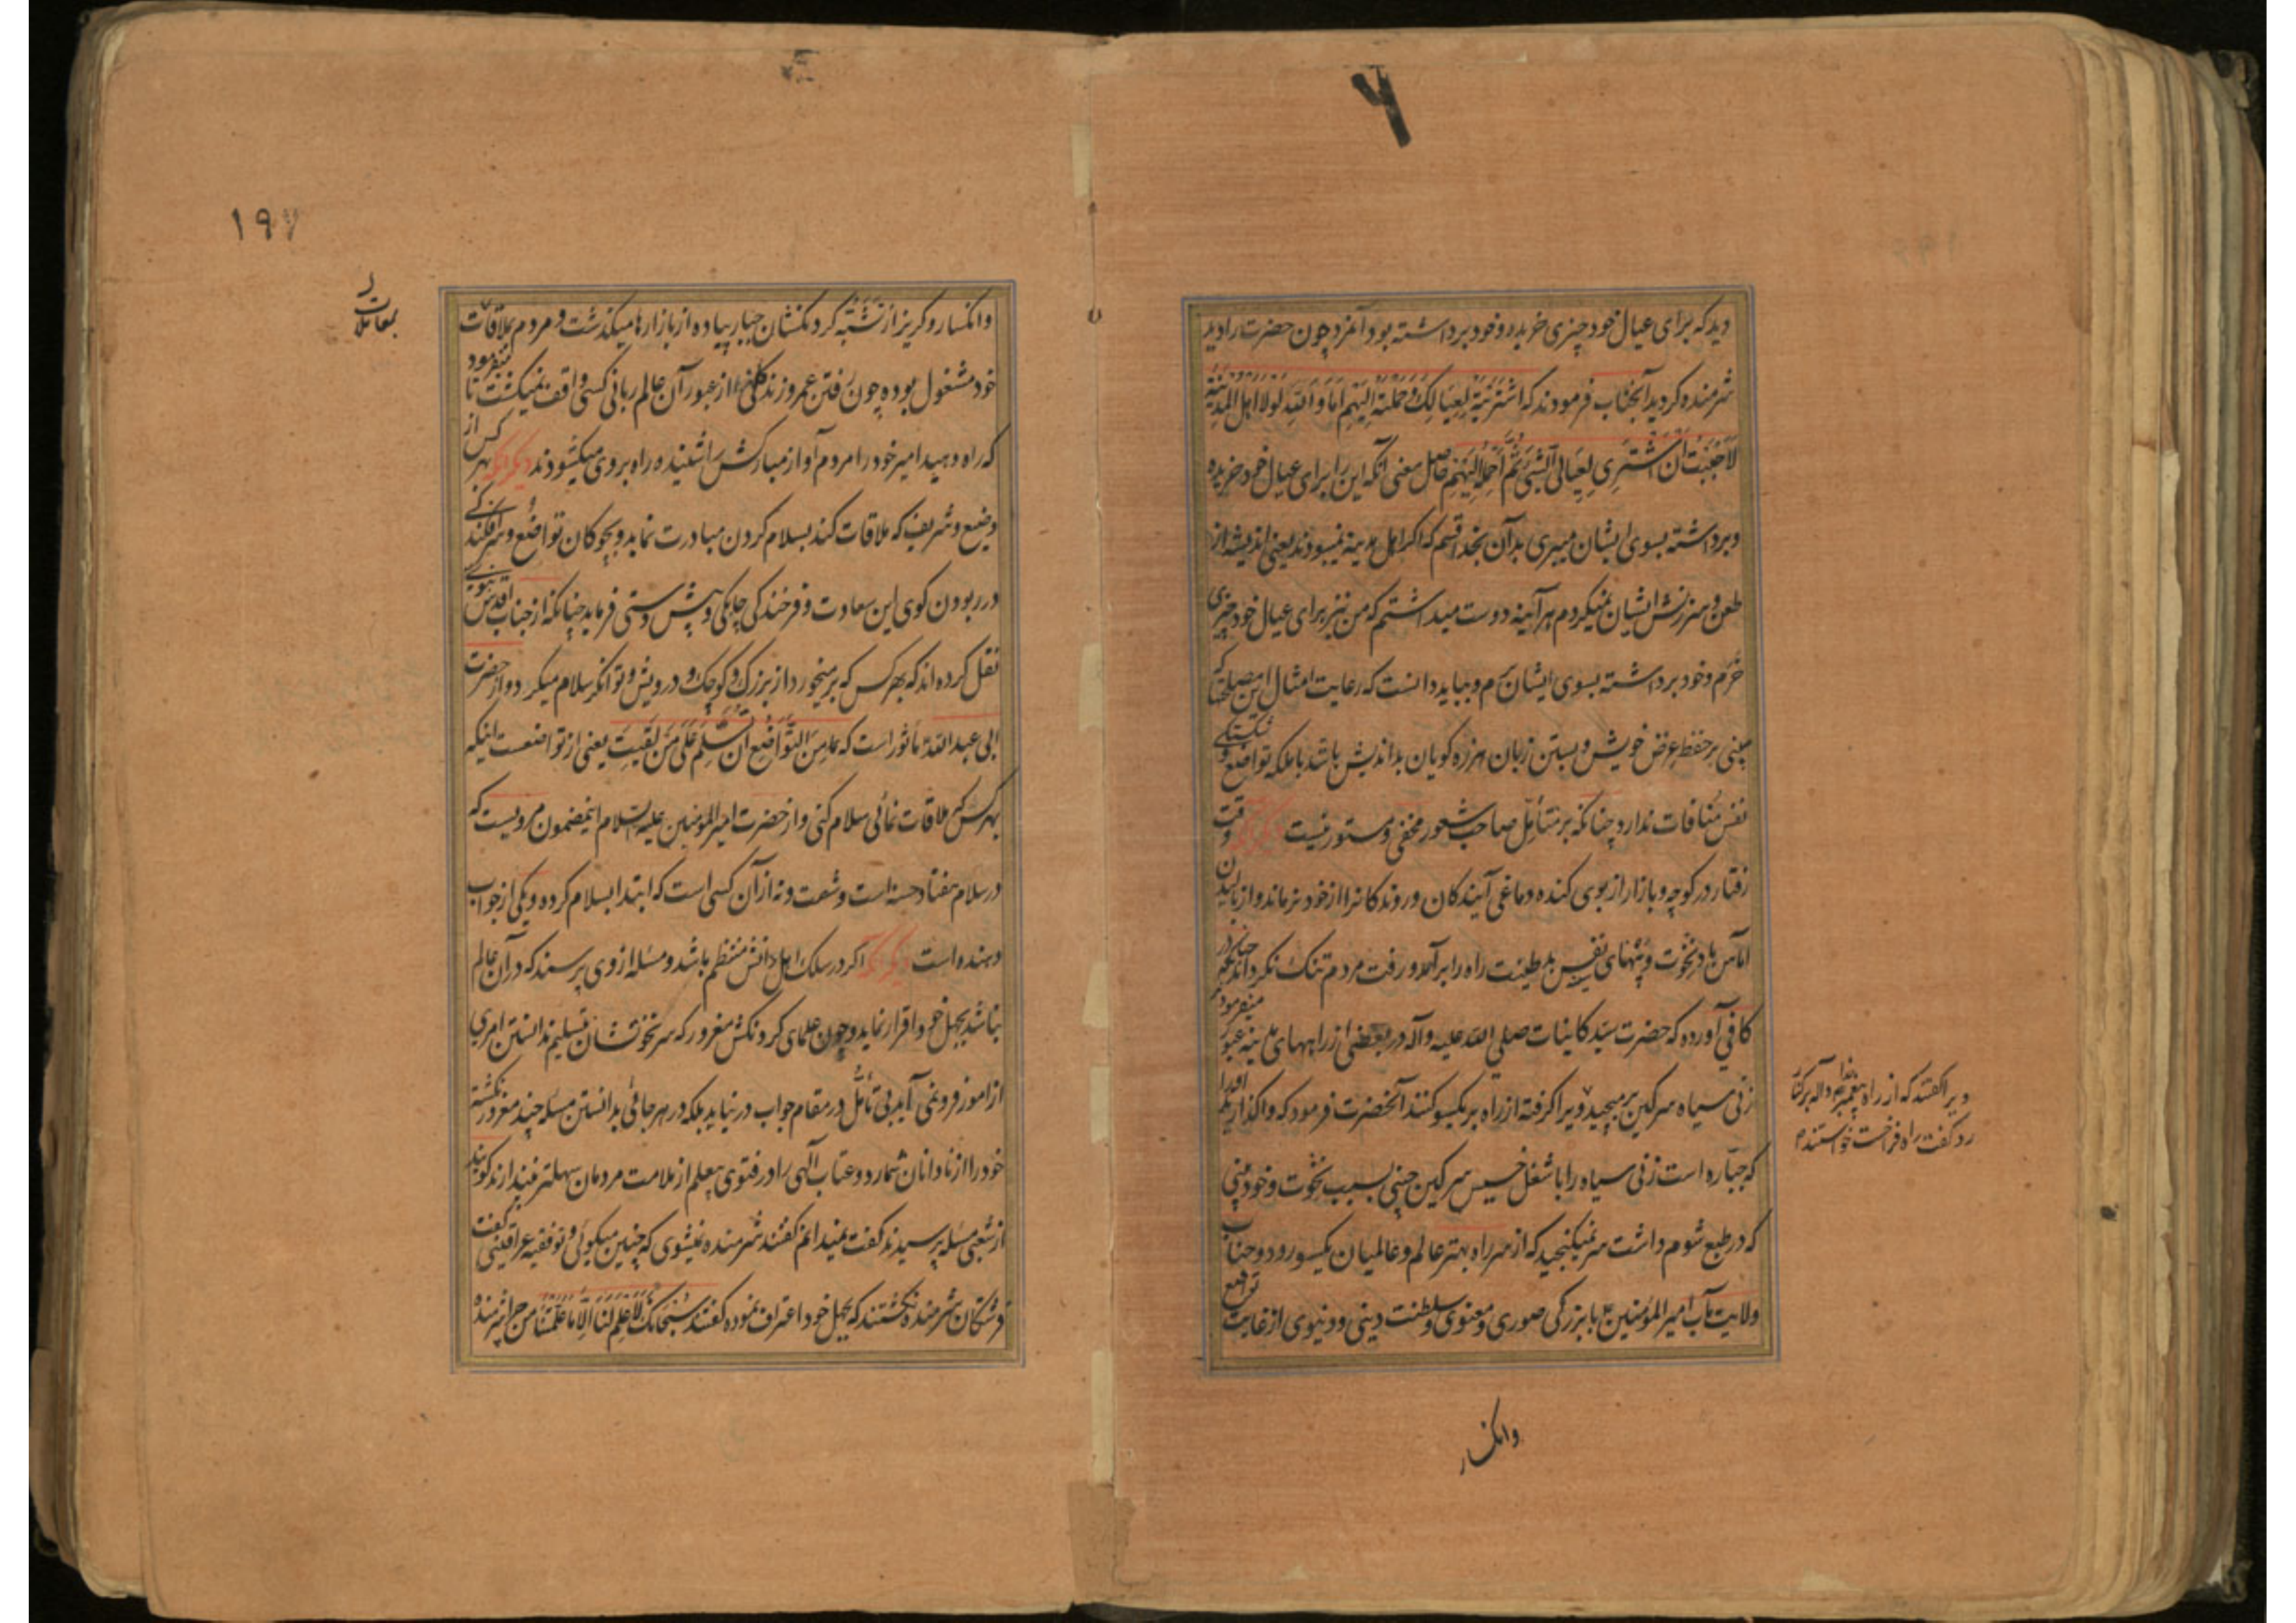 ۶
دید که برای عیال خود چیزی خریده و خود برداشته بود آنمرد چون حضرت را دید
شرمنده کردید آنجناب فرمودند که اشْتَرَیْتَهُ لِعِیَالِكَ وَحَمَلْتَهُ اِلَیْهِمْ اَمَا وَاللّهِ لَوْلَا اَهْلُ الْمَدِیْنَةِ
لَاَحْبَبْتُ اَنْ اَشْتَرِیَ لِعِیَالِی الشَّیْءَ ثُمَّ اَحْمِلَهُ اِلَیْهِمْ حاصل معنی آنکه این را برای عیال خود خریده
و برداشته بسوی ایشان میبری بدان بخدا قسم که اکر اهل مدینه نمیبودند یعنی اندیشه از
طعن و سرزنش ایشان نمیکردم هر آینه دوست میداشتم که من نیز برای عیال خود چیزی
خرم و خود برداشته بسوی ایشان برم و بباید دانست که رعایت امثال این مصلحتها که
مبنی بر حفظ عرض خویش و بستن زبان هرزه کویان بداندیش باشد با ملکه تواضع و شکستکی
نفس منافات ندارد چنانکه بر متأمل صاحب شعور مخفی و مستور نیست دیکر آنکه وقت
رفتار در کوچه و بازار از بوی کنده دماغی آیندکان و روندکانرا از خود نرماند و از بالیدن
اماس باد نخوت و پهنهای نفس بد طینت راه را بر آمد و رفت مردم تنک نکرداند چنانچه در
کافی آورده که حضرت سید کاینات صلی الله علیه و آله در بعضی از راههای مدینه عبور میفرمود
زنی سیاه سرکین برمیچید ویرا کرفته از راه بریکسو کنند آنحضرت فرمود که واکذاریدش
که جبّاره است زنی سیاه را با شغل خسیس سرکین چینی بسبب نخوت و خود بینی
که در طبع شوم داشت سر نمیکنجید که از سر راه بهتر عالم و عالمیان یکسو رود و جناب
ولایت مآب امیر المؤمنین ع با بزرکی صوری و معنوی و سلطنت دینی و دنیوی از غایت تواضع
ویرا کفتند که از راه پیغمبر
رد کفت راه فراخست خواستند
وانکسار
۱۹۷
بمعاملات
وانکسار و کریز از تشبه کردنکشان جبار پیاده از بازارها میکذشت و مردم بملاقات
خود مشغول بوده چون رفتن عمر و زندکانی از عبور آن عالم ربانی کسی واقف نمیکشت تا میفرمود
که راه دهید امیر خود را مردم آواز مبارکش را شنیده راه بر وی میکشودند دیکر آنکه بهر کس از
وضیع و شریف که ملاقات کند بسلام کردن مبادرت نماید و بچوکان تواضع و سر افکندکی
در ربودن کوی این سعادت و فرخندکی چابکی و پیش دستی فرماید چنانکه از جناب اقدس نبوی
نقل کرده اند که بهر کس که بر میخورد از بزرک و کوچک و درویش و توانکر سلام میکرد و از حضرت
ابی عبد الله ع مأثور است که مِنَ التَّوَاضُعِ اَنْ تُسَلِّمَ عَلَی مَنْ لَقِیْتَ یعنی از تواضعست اینکه
بهر کس که ملاقات نمائی سلام کنی و از حضرت امیر المؤمنین علیه السلام اینمضمون مرویست که
در سلام هفتاد حسنه است و شصت و نه از آن کسی است که ابتدا بسلام کرده و یکی از جواب
دهنده است دیکر آنکه اکر در سلک اهل دانش منتظم باشد و مسئله از وی پرسند که در آن عالم
نباشد بجهل خود اقرار نماید و چون علمای کردنکش مغرور که سر نخوتشان بتسلیم ندانستن امری
از امور فرو نمی آید بی تأمل در مقام جواب در نیاید بلکه در هر جائی بدانستن مسئله چند مغرور نکشته
خود را از نادانان شمارد و عتاب الهی را در فتوی بیعلم از ملامت مردمان سهلتر نپندارند کویند که
از شعبی مسئله پرسیدند کفت نمیدانم کفتند شرمنده نمیشوی که چنین میکوئی و تو فقیه عراقینی کفت
فرشتکان شرمنده نکشتند که بجهل خود اعتراف نموده کفتند سُبْحَانَكَ لَا عِلْمَ لَنَا اِلَّا مَا عَلَّمْتَنَا من چرا شرمنده